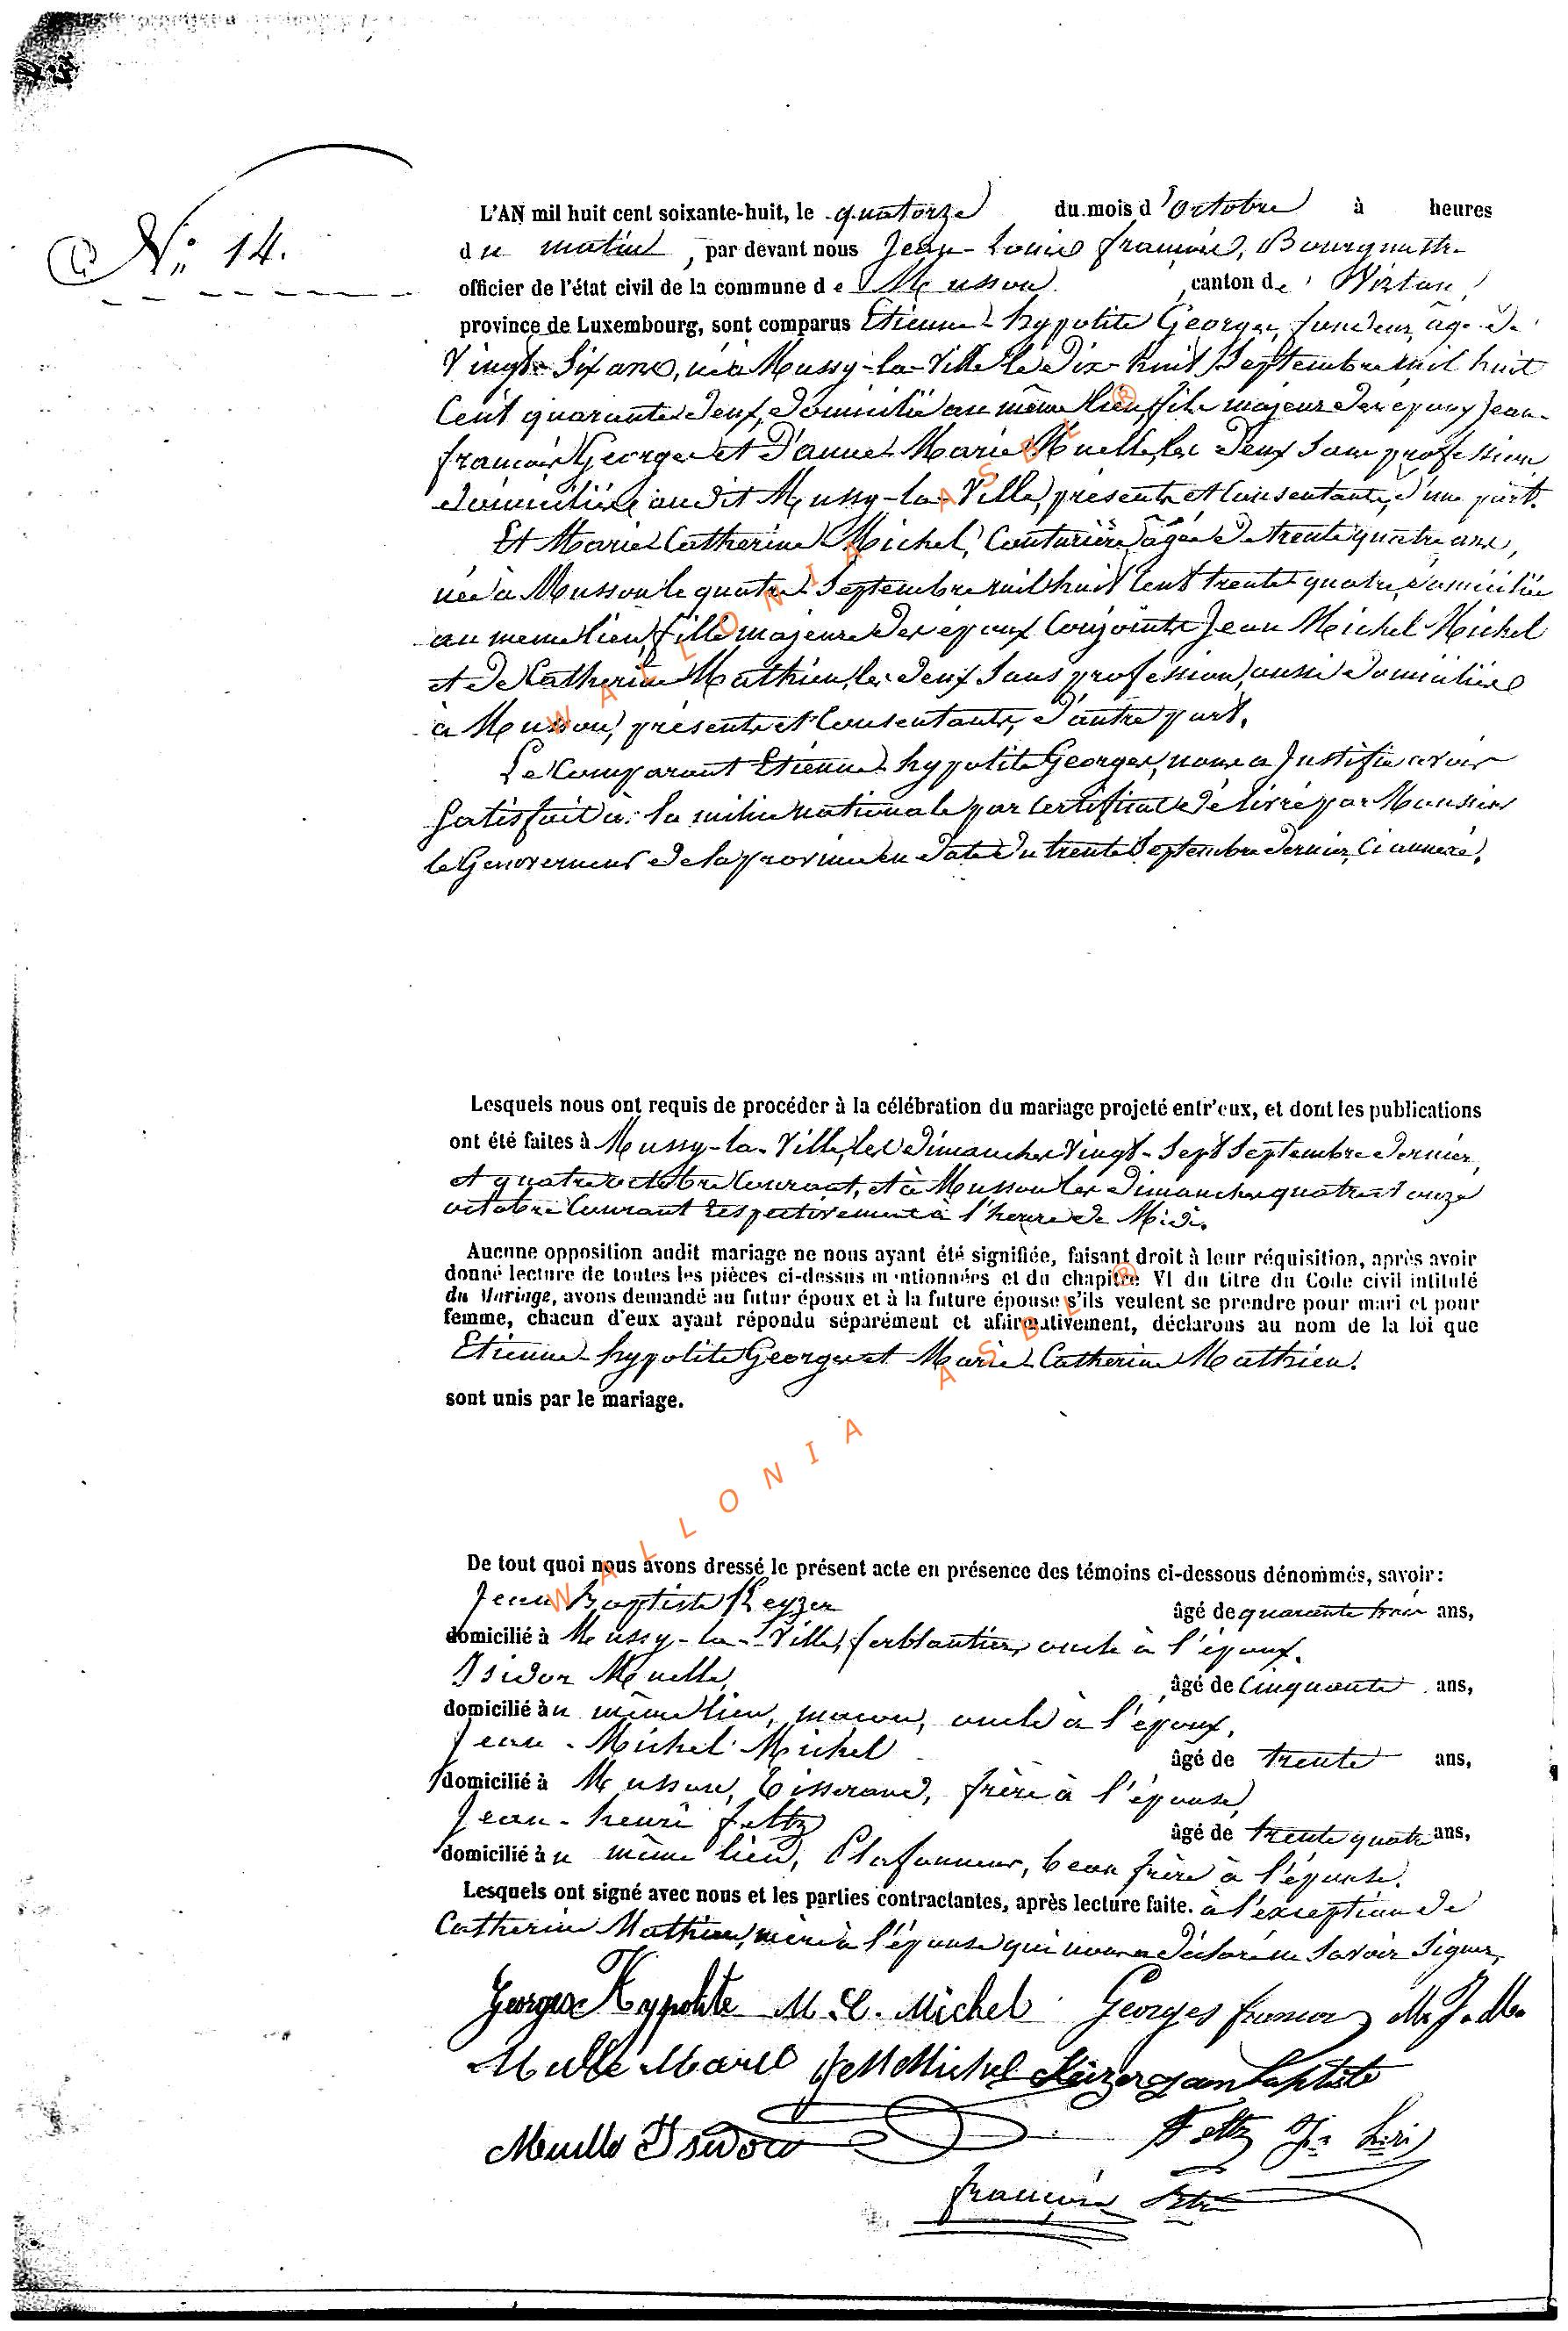 N° 14.
L'AN mil huit cent soixante-huit, le quatorze du mois d'octobre à heures
du matin, par devant nous Jean-Louis françois, Bourgmestre
officier de l'état civil de la commune de Musson canton de Virton,
province de Luxembourg, sont comparus Etienne-hypolite Georges, fondeur, âgé de
Vingt-Six ans, né à Mussy-la-Ville le dix-huit Septembre mil huit
Cent quarante deux, domicilié au même lieu, fils majeur des époux Jean-
françois Georges et d'anne-Marie Muelle, les deux sans profession
domiciliés audit Mussy-la-Ville, présents et Consentants, d'une part.
Et Marie-Catherine Michel, Couturière âgée de trente quatre ans,
née à Musson le quatre Septembre mil huit Cent trente-quatre, domiciliée
au même lieu, fille majeure des époux Conjoints Jean Michel Michel
et de Catherine Mathieu, les deux Sans profession, aussi domiciliés
à Musson, présents et Consentants, d'autre part.
Le Comparant Etienne-hypolite Georges, nous a Justifié avoir
Satisfait à la milice nationale par Certificat délivré par Monsieur
le Gouverneur de la province en date du trente Septembre dernier, Ci annexé.
Lesquels nous ont requis de procéder à la célébration du mariage projeté entr'eux, et dont les publications
ont été faites à Mussy-la-Ville, les dimanches Vingt-Sept Septembre dernier,
et quatre octobre Courant, et à Musson les dimanches quatre et onze
octobre Courant respectivement à l'heure de Midi.
Aucune opposition audit mariage ne nous ayant été signifiée, faisant droit à leur réquisition, après avoir
donné lecture de toutes les pièces ci-dessus mentionnées et du chapitre VI du titre du Code civil intitulé
du Mariage, avons demandé au futur époux et à la future épouse s'ils veulent se prendre pour mari et pour
femme, chacun d'eux ayant répondu séparément et affirmativement, déclarons au nom de la loi que
Etienne-hypolite Georges et Marie-Catherine Mathieu.
sont unis par le mariage.
De tout quoi nous avons dressé le présent acte en présence des témoins ci-dessous dénommés, savoir:
Jean Baptiste Keyzer âgé de quarante trois ans,
domicilié à Mussy-la-Ville, ferblantier, oncle à l'époux.
Isidor Muelle, âgé de Cinquante ans,
domicilié au même lieu, maçon, oncle à l'époux,
Jean-Michel Michel âgé de trente ans,
domicilié à Musson, Tisserand, frère à l'épouse,
Jean-henri feltz âgé de trente quatre ans,
domicilié au même lieu, Plafonneur, beau frère à l'épouse.
Lesquels ont signé avec nous et les parties contractantes, après lecture faite. à l'exception de
Catherine Mathieu, mère à l'épouse qui nous a déclaré ne Savoir Signer.
Georges Hypolite M. C. Michel Georges francois
Mulle Marie JeM Michel Keizer Jean baptiste
Muelle Isidore Feltz Jn hri
françois
WALLONIA ASBL ®
WALLONIA ASBL ®